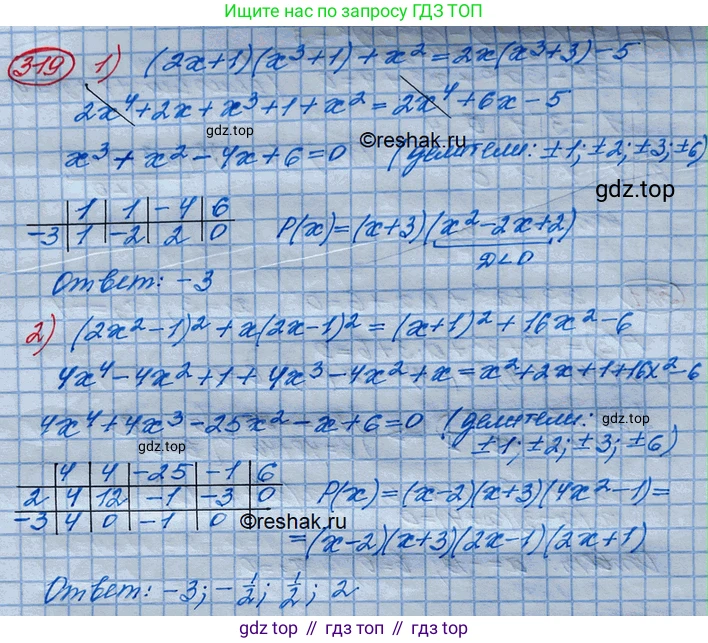 Ищите нас в поисковике по запросу ГДЗ ТОП
319 1) (2x+1)(x³+1)+x²=2x(x³+3)-5
2x⁴+2x+x³+1+x²=2x⁴+6x-5
gdz.top
©reshak.ru
x³+x²-4x+6=0 (делители: ±1; ±2; ±3; ±6)
gdz.top
1 | 1 | -4 | 6
-3 | 1 | -2 | 2 | 0
P(x)=(x+3)(x²-2x+2)
D<0
Ответ: -3
2) (2x²-1)²+x(2x-1)²=(x+1)²+16x²-6
4x⁴-4x²+1+4x³-4x²+x=x²+2x+1+16x²-6
4x⁴+4x³-25x²-x+6=0 (делители:
±1; ±2; ±3; ±6)
gdz.top
4 | 4 | -25 | -1 | 6
2 | 4 | 12 | -1 | -3 | 0
-3 | 4 | 0 | -1 | 0
©reshak.ru
P(x)=(x-2)(x+3)(4x²-1)=
=(x-2)(x+3)(2x-1)(2x+1)
Ответ: -3; -1/2; 1/2; 2
gdz.top // гдз.топ // gdz.top